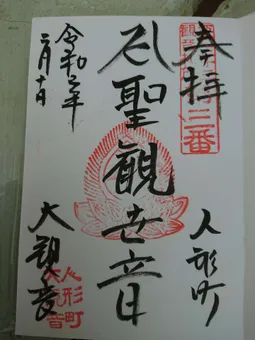 奉拝
三番
人形町
聖観世音
大観音
人形町
大観音
令和二年
二月十日